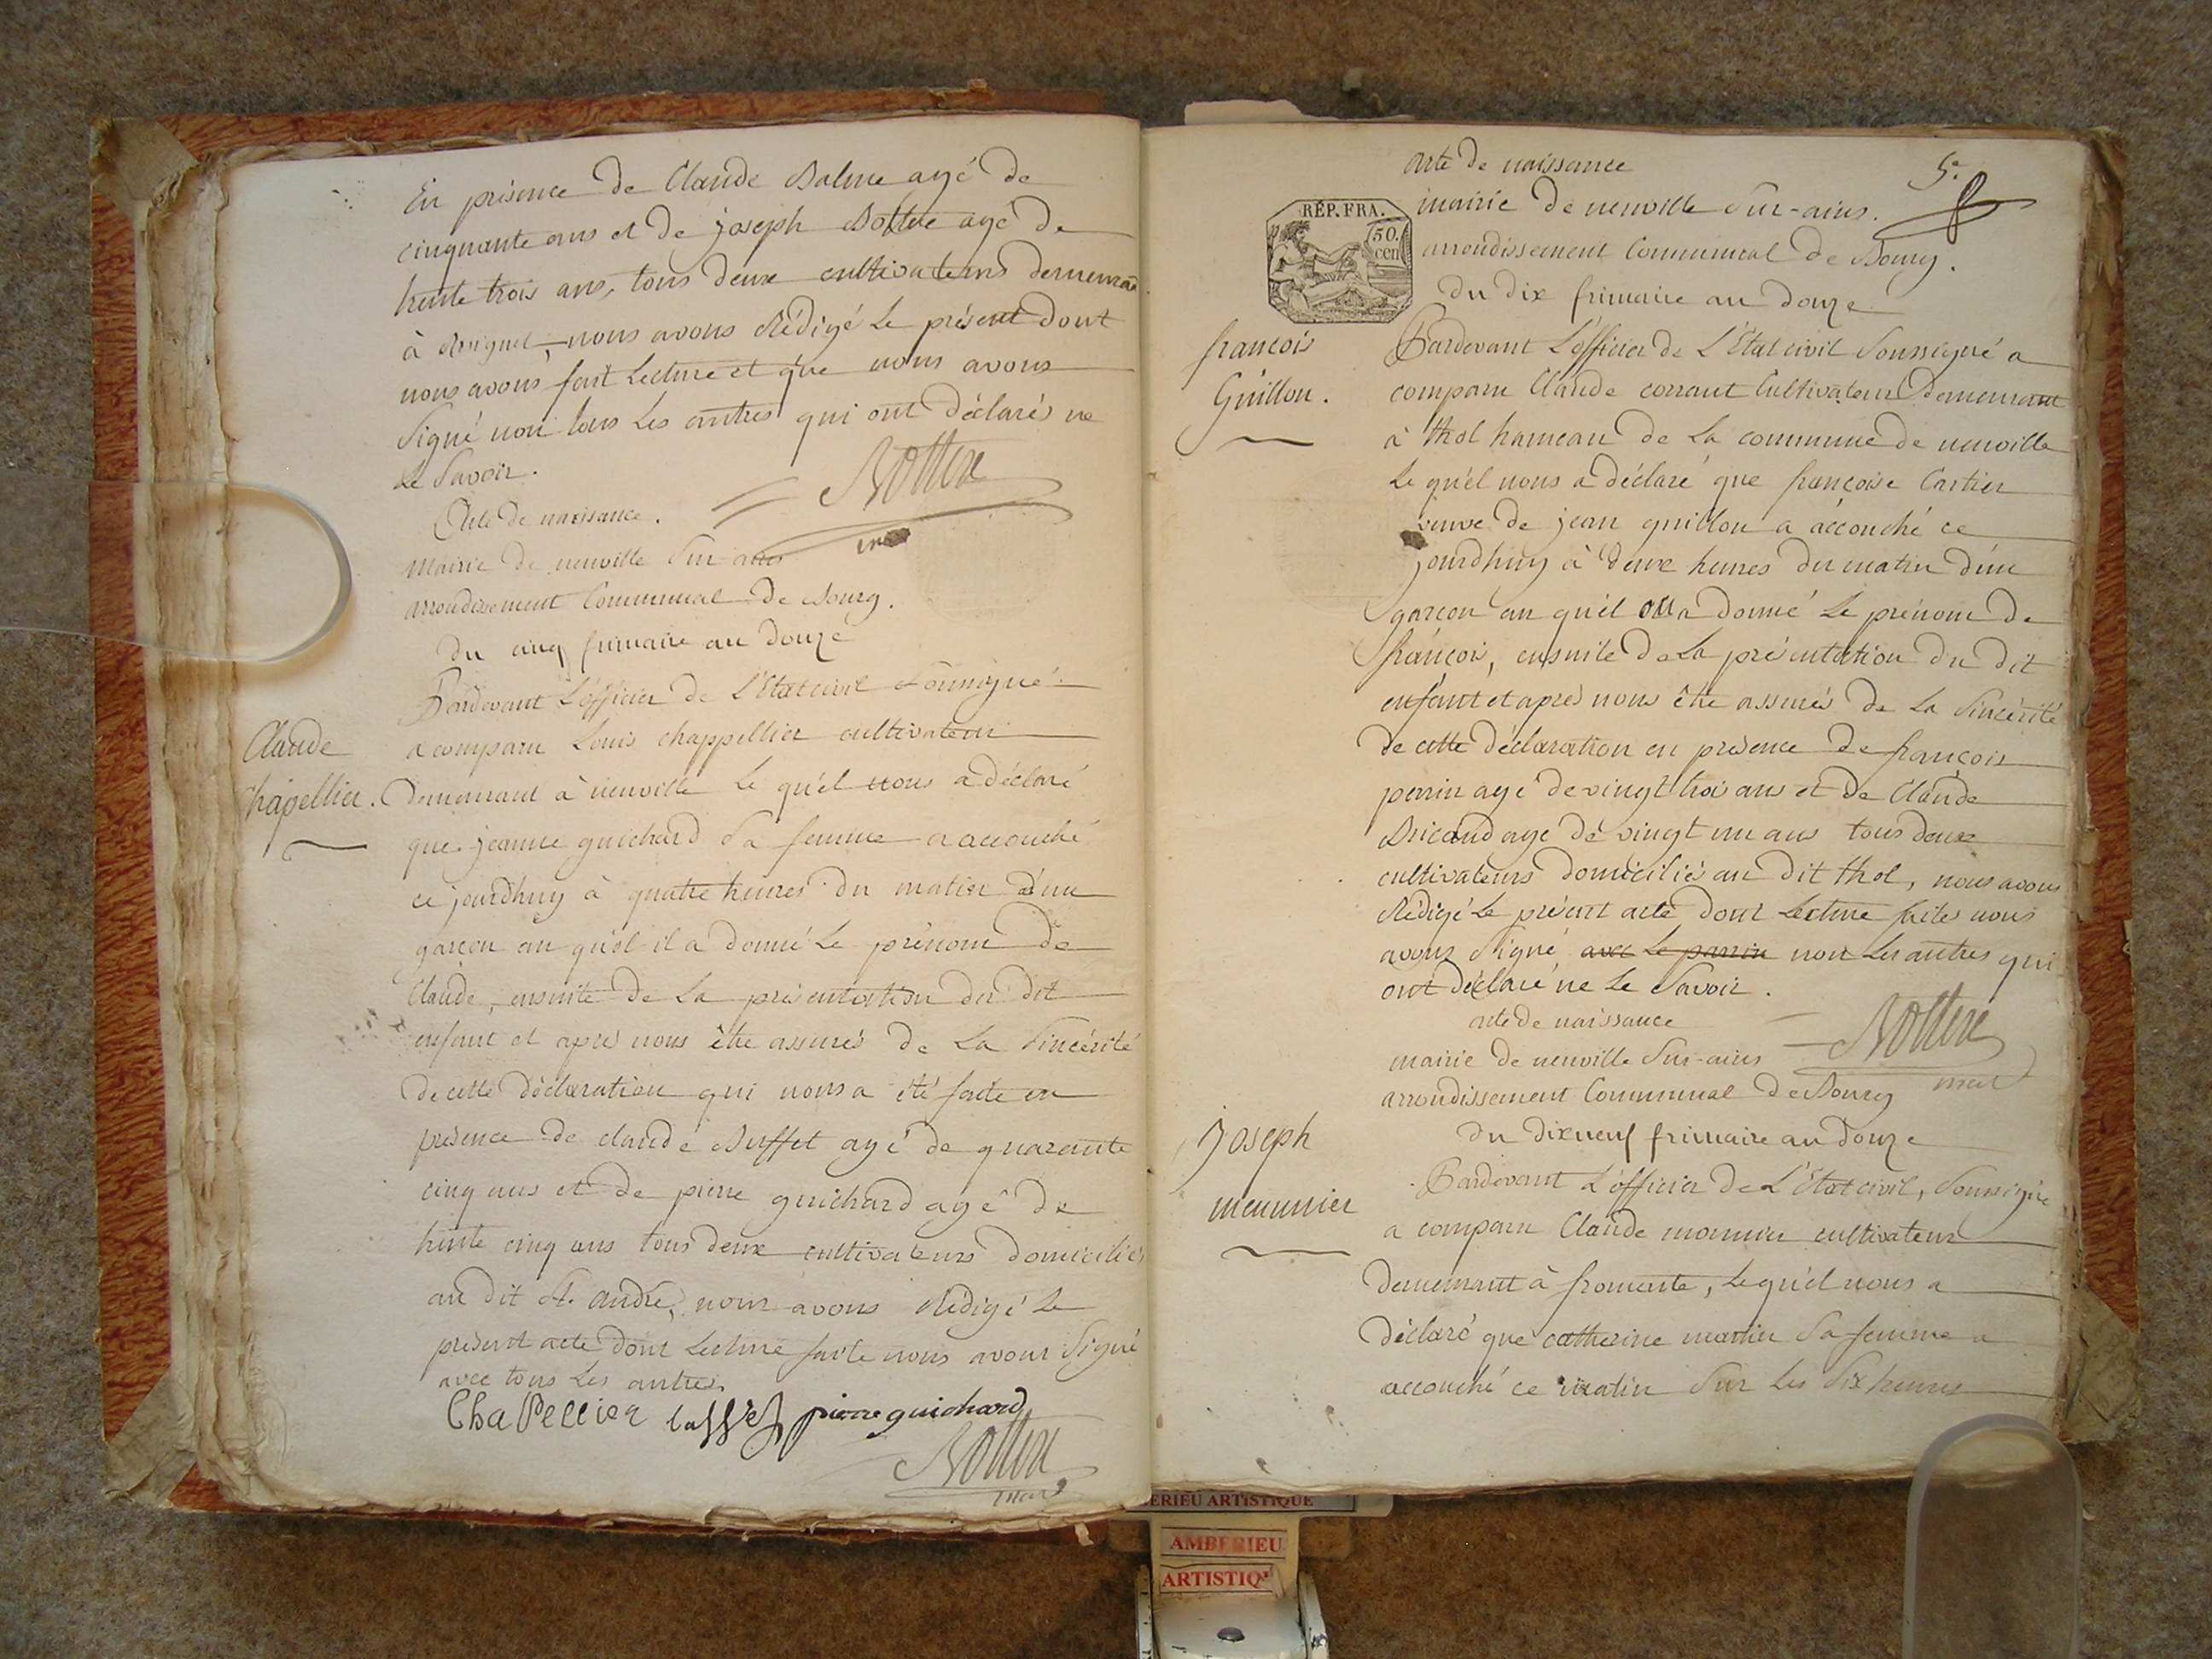 En présence de Claude Balme agé de
cinquante ans et de joseph agé de
trente trois ans, tous deux cultivateurs demeurant
à nous avons Rédigé Le présent dont
nous avons fait Lecture et que nous avons
Signé non tous Les autres qui ont déclarés ne
Le Savoir.
Acte de naissance.
Mairie de neuville Sur-ains
arrondissement Communal de Bourg.
Du cinq frimaire an douze
Claude
Chapellier.
Pardevant L'officier de L'Etat civil Soussigné
a comparu Louis chappellier cultivateur
demeurant à neuville Le quel nous a déclaré
que jeanne guichard Sa femme a accouché
ce jourdhuy à quatre heures du matin d'un
garçon au quel il a donné Le prénom de
Claude, ensuite de La présentation du dit
enfant et après nous être assurés de La Sincérité
de cette déclaration qui nous a été faite en
présence de claude Buffet agé de quarante
cinq ans et de pierre guichard agé de
trente cinq ans tous deux cultivateurs domiciliés
au dit St. andré, nous avons Rédigé Le
présent acte dont Lecture faite nous avons Signé
avec tous Les autres.
ChaPellier buffet pierre guichard
maire
5.
acte de naissance
mairie de neuville Sur-ains.
arrondissement Communal de Bourg.
du dix frimaire an douze
RÉP. FRA.
50.
cen
francois
Guillon.
Pardevant L'officier de L'Etat civil Soussigné a
comparu Claude corrant Cultivateur Demeurant
à thol hameau de La commune de neuville
Le quel nous a déclaré que françoise Cartier
veuve de jean guillon a accouché ce
jourdhuy à deux heures du matin d'un
garçon au quel on a donné Le prénom de
françois, ensuite de La présentation du dit
enfant et après nous être assurés de La Sincérité
de cette déclaration en présence de françois
perrin agé de vingt trois ans et de Claude
Bricaud agé de vingt un ans tous deux
cultivateurs domiciliés au dit thol, nous avons
Rédigé Le présent acte dont Lecture faites nous
avons Signé avec Le parrin non Les autres qui
ont déclaré ne Le Savoir.
acte de naissance
mairie de neuville Sur-ains
arrondissement Communal de Bourg
maire
du dixneuf frimaire an douze
Joseph
meunnier
Pardevant L'officier de L'Etat civil, Soussigné
a comparu Claude monnier cultivateur
demeurant à fromente, Le quel nous a
déclaré que catherine martin Sa femme a
accouché ce matin Sur Les Six heures
ERIEU ARTISTIQUE
AMBERIEU
ARTISTIQ